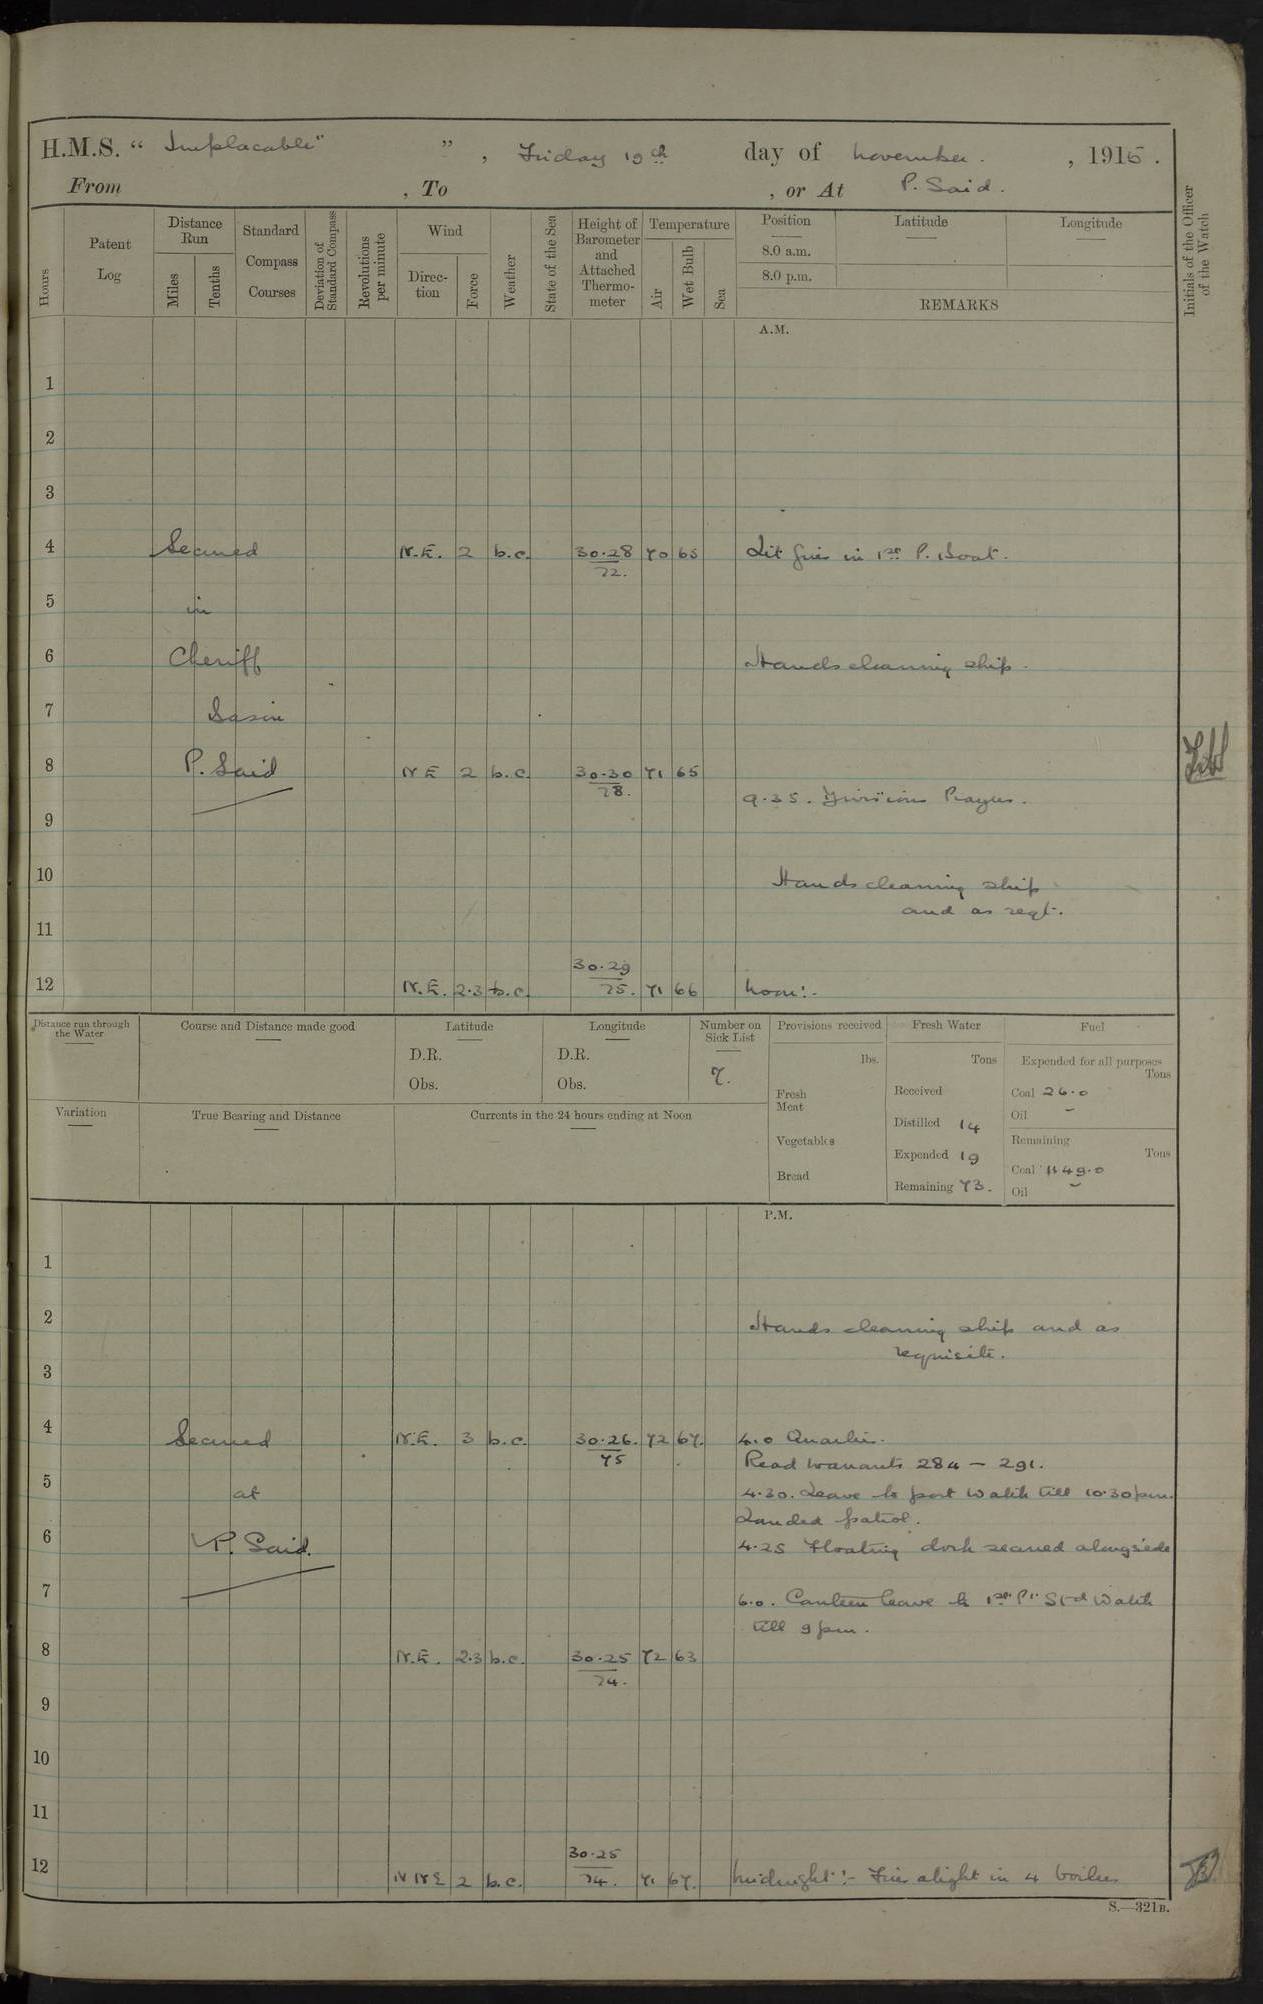 H.M.S. “ Implacable" ” , Friday 19th day of November. , 1915 .
From , To , or At P. Said.
Hours
Patent Log
Distance Run
Miles
Tenths
Standard Compass Courses
Deviation of Standard Compass
Revolutions per minute
Wind
Direction
Force
Weather
State of the Sea
Height of Barometer and Attached Thermometer
Temperature
Air
Wet Bulb
Sea
Position
8.0 a.m.
8.0 p.m.
Latitude
Longitude
REMARKS
Initials of the Officer of the Watch
A.M.
1
2
3
4 Secured N.E. 2 b.c. 30.28 70 65 Lit fires in 1st P. Boat.
72.
5 in
6 Cheriff Hands cleaning ship.
7 Basin
8 P. Said N E 2 b.c. 30.30 71 65
78.
9.35. Divisions Prayers.
9
10 Hands cleaning ship
and as reqt.
11
30.29
12 N.E. 2.3 b.c. 75. 71 66 Noon:-
Distance run through the Water
Course and Distance made good
Latitude
D.R.
Obs.
Longitude
D.R.
Obs.
Number on Sick List
7.
Provisions received
lbs.
Fresh Meat
Vegetables
Bread
Fresh Water
Tons
Received
Distilled 14
Expended 19
Remaining 73.
Fuel
Expended for all purposes
Tons
Coal 26.0
Oil -
Remaining
Tons
Coal 1149.0
Oil -
Variation
True Bearing and Distance
Currents in the 24 hours ending at Noon
P.M.
1
2 Hands cleaning ship and as
requisite.
3
4 Secured N.E. 3 b.c. 30.26. 72 67. 4.0 Quarters.
75 Read warrants 284 - 291.
5 at 4.30. Leave to port watch till 10.30 pm.
Landed patrol.
6 P. Said. 4.25 Floating dock secured alongside
7 6.0. Canteen leave to 1st Pt Stbd Watch
till 9 pm.
8 N.E. 2.3 b.c. 30.25 72 63
74.
9
10
11
30.25
12 N N E 2 b.c. 74. 71 67. Midnight:- Fires alight in 4 boilers
S.—321B.